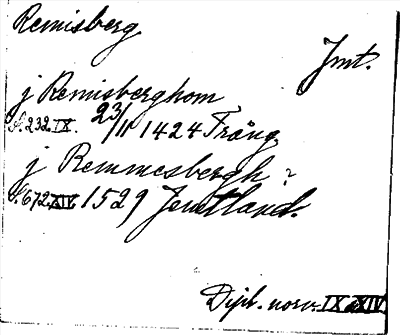 Remisberg
Jmt.
j Remisberghom
S. 232. IX. 23/11 1424 Trång
j Remmesbergh ?
S. 672. XIV. 1529 Jemtland.
Dipl. norv. IX o XIV.